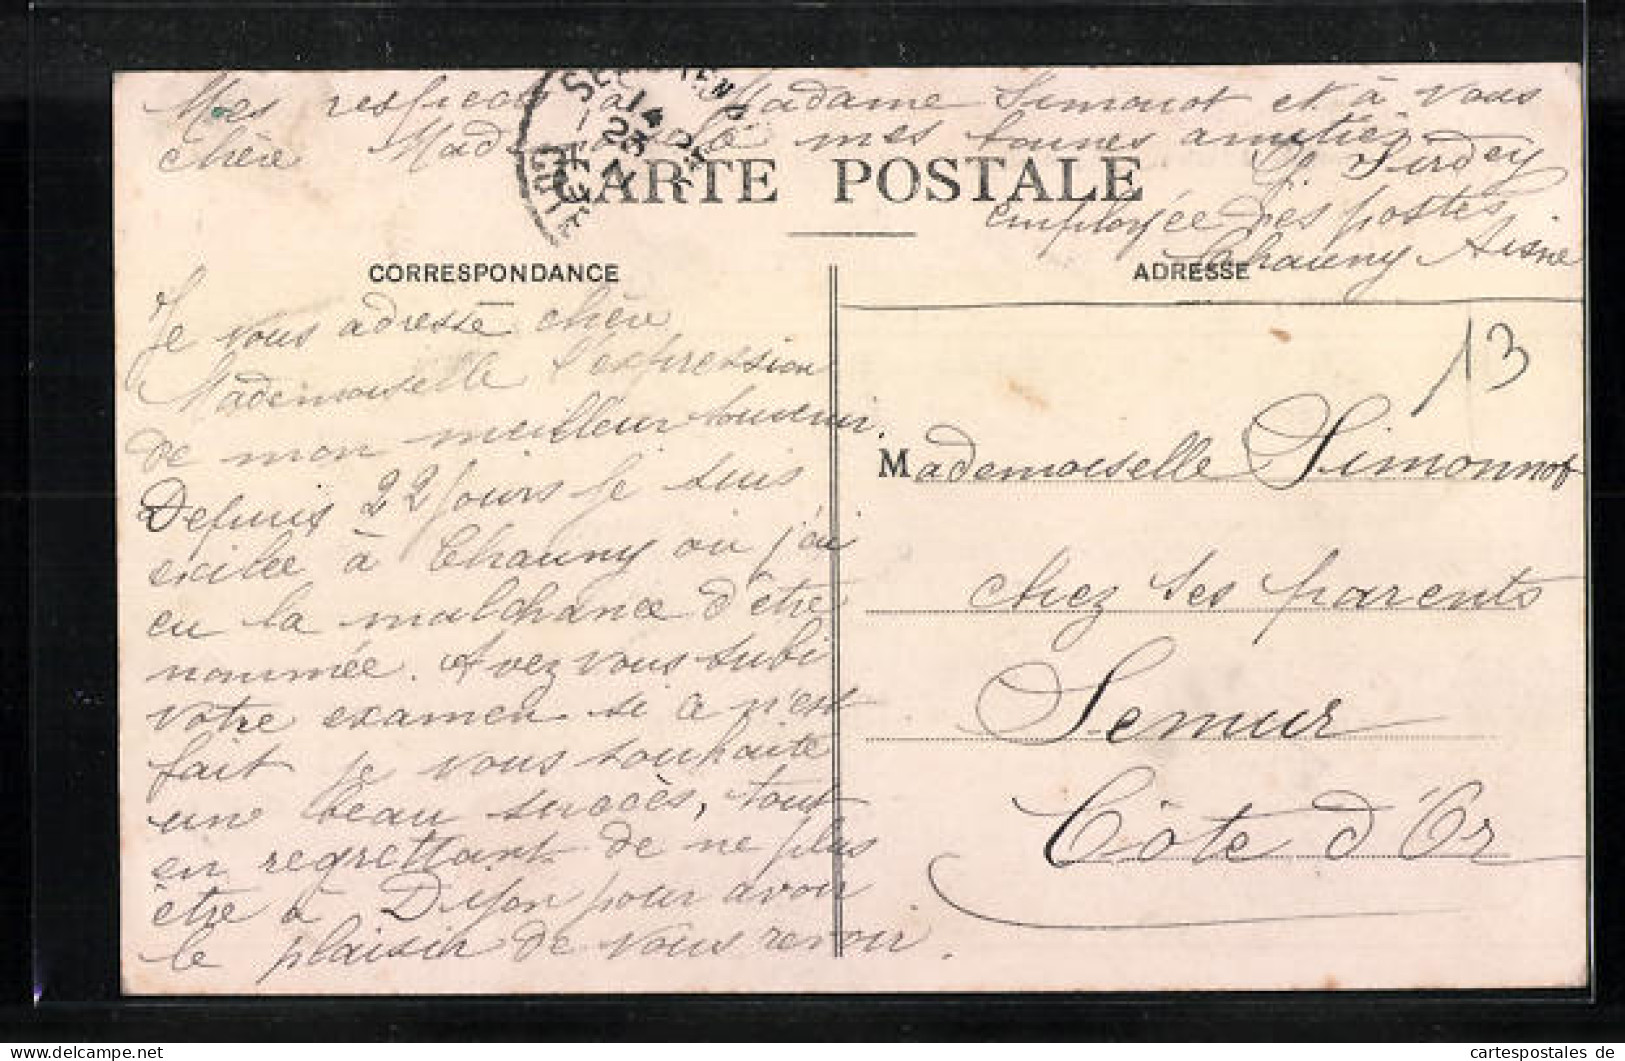 Mes respects à Madame Simonot et à vous
chère Mademoiselle mes bonnes amitiés
Sirdey
employée des postes
Chauny Aisne
CARTE POSTALE
CORRESPONDANCE
Je vous adresse chère
Mademoiselle l'expression
de mon meilleur souvenir.
Depuis 22 jours je suis
exilée à Chauny où j'ai
eu la malchance d'être
nommée. Avez vous subi
votre examen si ce n'est
fait je vous souhaite
une beau succès, tout
en regrettant de ne plus
être à Dijon pour avoir
le plaisir de vous revoir.
ADRESSE
13
Mademoiselle Simonnot
chez ses parents
Semur
Côte d'Or
cartespostales de